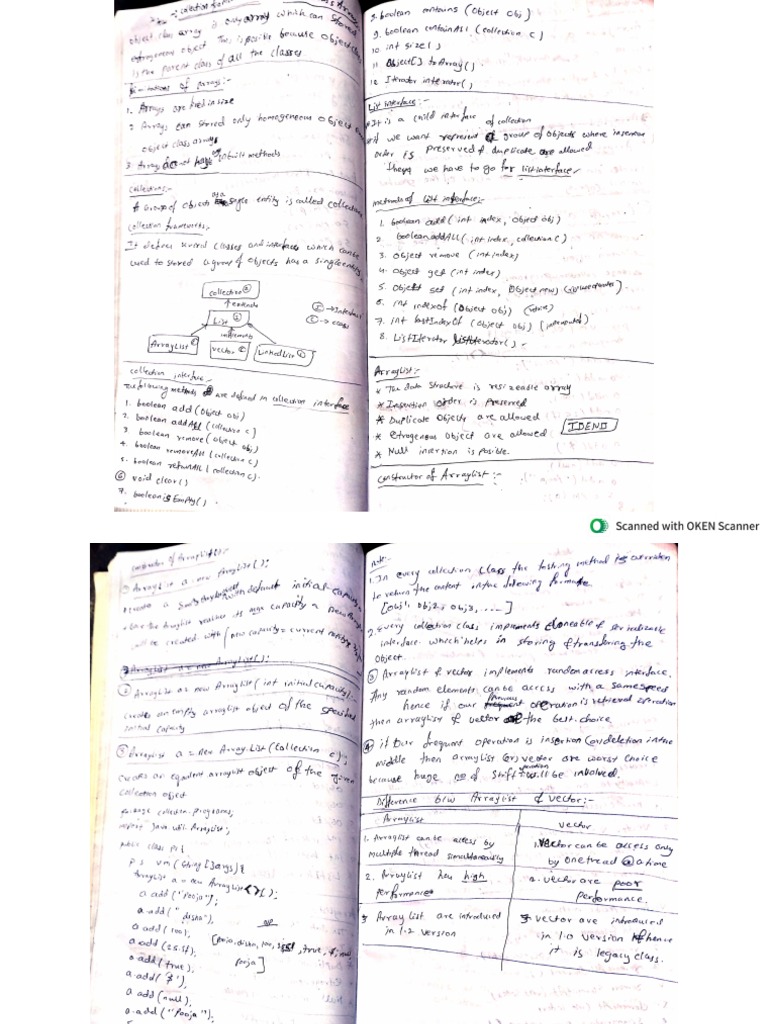 object class array is only array which can stored
etrogeneous object This is posible because object class
is the parent class of all the classes
of arrays:-
1. Arrays are fixed in size
2 Arrays can stored only homogeneous object
object class arrays
3. Arrays do not have inbuilt methods
Collections:-
A Group of objects as a single entity is called collection
collection framework:-
It defines several classes and interfaces which can be
used to stored a group of objects has a single entity.
Collection
extends
List
implements
ArrayList
Vector
LinkedList
I → Interface
C → class
collection interface:-
The following methods are defined in collection interface
1. boolean add (Object obj)
2. boolean addAll (collection c)
3. boolean remove (object obj)
4. boolean removeAll (collection c)
5. boolean retainAll (collection c).
6 void clear()
7. boolean isEmpty()
8. boolean contains (Object obj)
9. boolean containAll (collection c)
10 int size()
11 Object[] toArray()
12 Iterator iterator()
List interface:-
It is a child interface of collection
if we want represent a group of objects where insertion
order is preserved & duplicate are allowed
we have to go for list interface.
methods of List interface:-
1. boolean add (int index, object obj)
2. boolean addAll (int index, collection c)
3. Object remove (int index)
4. Object get (int index)
5. Object set (int index, Object new)
6. int indexOf (Object obj)
7. int lastIndexOf (Object obj)
8. ListIterator listIterator()
ArrayList:-
* The data structure is resizeable array
* Insertion order is preserved
* Duplicate Objects are allowed
* Etrogeneous object are allowed
IDEND
* Null insertion is posible.
Constructor of Arraylist:-
Scanned with OKEN Scanner
constructor of Arraylist:-
ArrayList a = new ArrayList();
default initial capacity
Once the Arraylist reaches its max capacity a new Array
will be created with (new capacity = current capacity
ArrayList a = new ArrayList();
2 ArrayList a = new ArrayList (int initial capacity).
creates an empty arraylist object of the specified
initial capacity
3 ArrayList a = new ArrayList (Collection c);
creates an equalent arraylist object of the given
collection object
package collection.programs;
import java.util.Arraylist;
public class P1 {
p s v m (String []args) {
ArrayList a = new ArrayList<>();
a.add ("Pooja");
a.add ("disha");
a.add (100);
a.add (25.5f);
a.add (true);
a.add ('$');
a.add (null);
a.add ("Pooja");
O/P
[pooja, disha, 100, 25.5, true, $, null,
pooja]
note:-
1. In every collection class the tostring method is overriden
to return the content in the following formate.
[obj1, obj2, obj3, ....]
2. Every collection class implements cloneable & serializable
interface which helps in storing & transfering the
object.
3 Arraylist & vector implements random access interface.
Any random elements can be access with a same speed
hence if our frequent operation is retrieval operation
then arraylist & vector the best choice
4 if Our frequent operation is insertion (or) deletion in the
middle then arraylist (or) vector are worst choice
because huge no of shift operation will be inbolved.
Difference b/w Arraylist & vector:-
Arraylist
vector
1. Arraylist can be access by
multiple thread simultaneously
1. Vector can be access only
by one tread @ a time
2. Arraylist has high
performance
2. vector are poor
performance.
3 Array list are introduced
in 1.2 version
3 vector are introduced
in 1.0 version hence
it is legacy class.